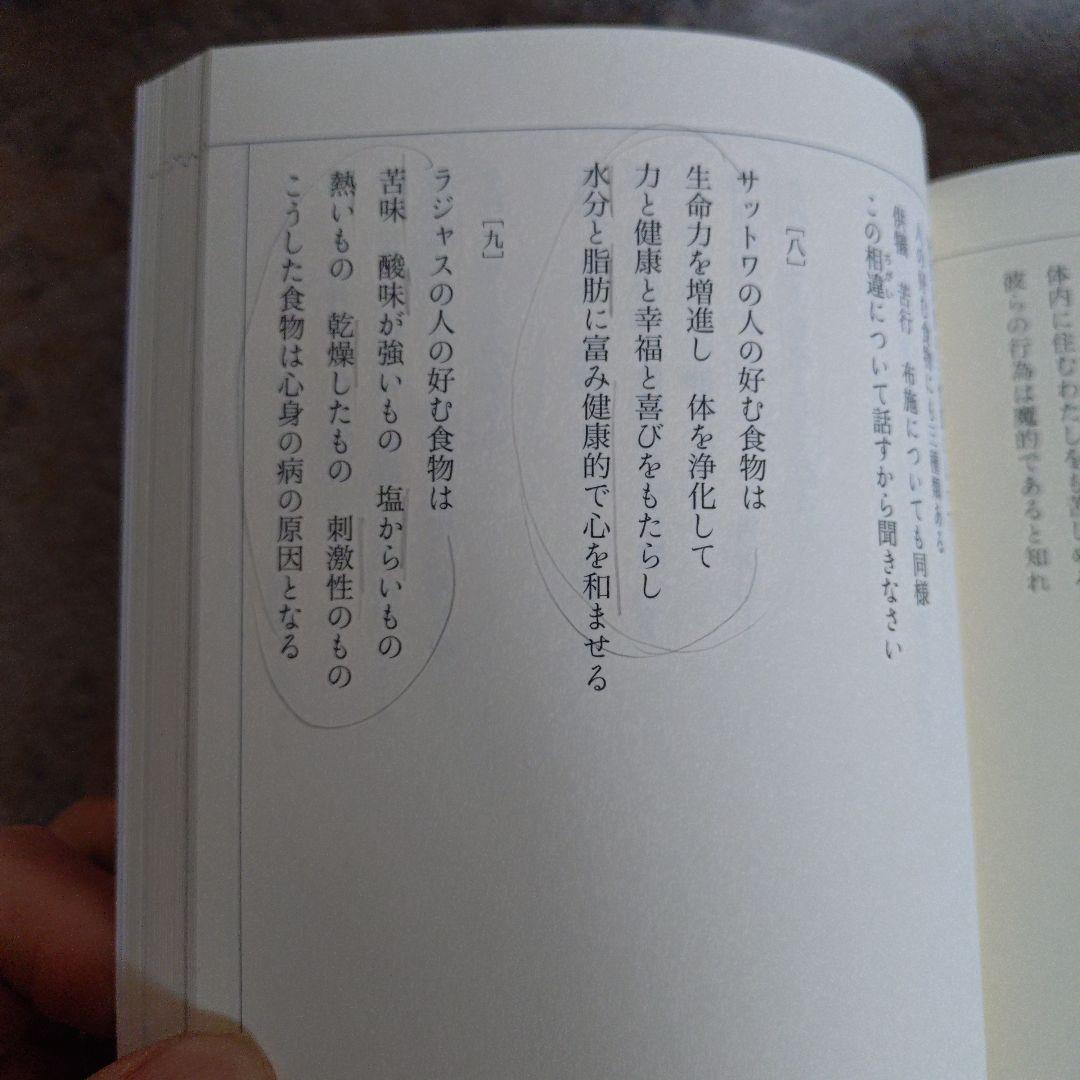 体内に住むわたしをも苦しめる
彼らの行為は魔的であると知れ
供犠 苦行 布施についても同様
この相違について話すから聞きなさい
ちがい
[八]
サットワの人の好む食物は
生命力を増進し 体を浄化して
力と健康と幸福と喜びをもたらし
水分と脂肪に富み健康的で心を和ませる
[九]
ラジャスの人の好む食物は
苦味 酸味が強いもの 塩からいもの
熱いもの 乾燥したもの 刺激性のもの
こうした食物は心身の病の原因となる